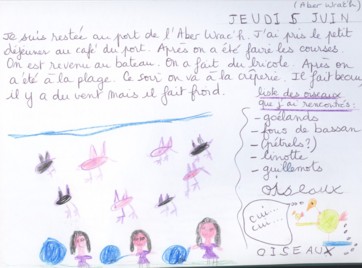 (Aber Wrac'h)
JEUDI 5 JUIN
Je suis restée au port de l'Aber Wrac'h. J'ai pris le petit
déjeuner au café du port. Après on a été faire les courses.
On est revenu au bateau. On a fait du tricole. Après on
a été à la plage. Ce soir on va à la crêperie. Il fait beau
il y a du vent mais il fait froid.
liste des oiseaux
que j'ai rencontrés :
- goélands
- fous de bassan
- (pétrels?)
- linotte
- guillemots
oiseaux
cui...
cui...
OISEAUX